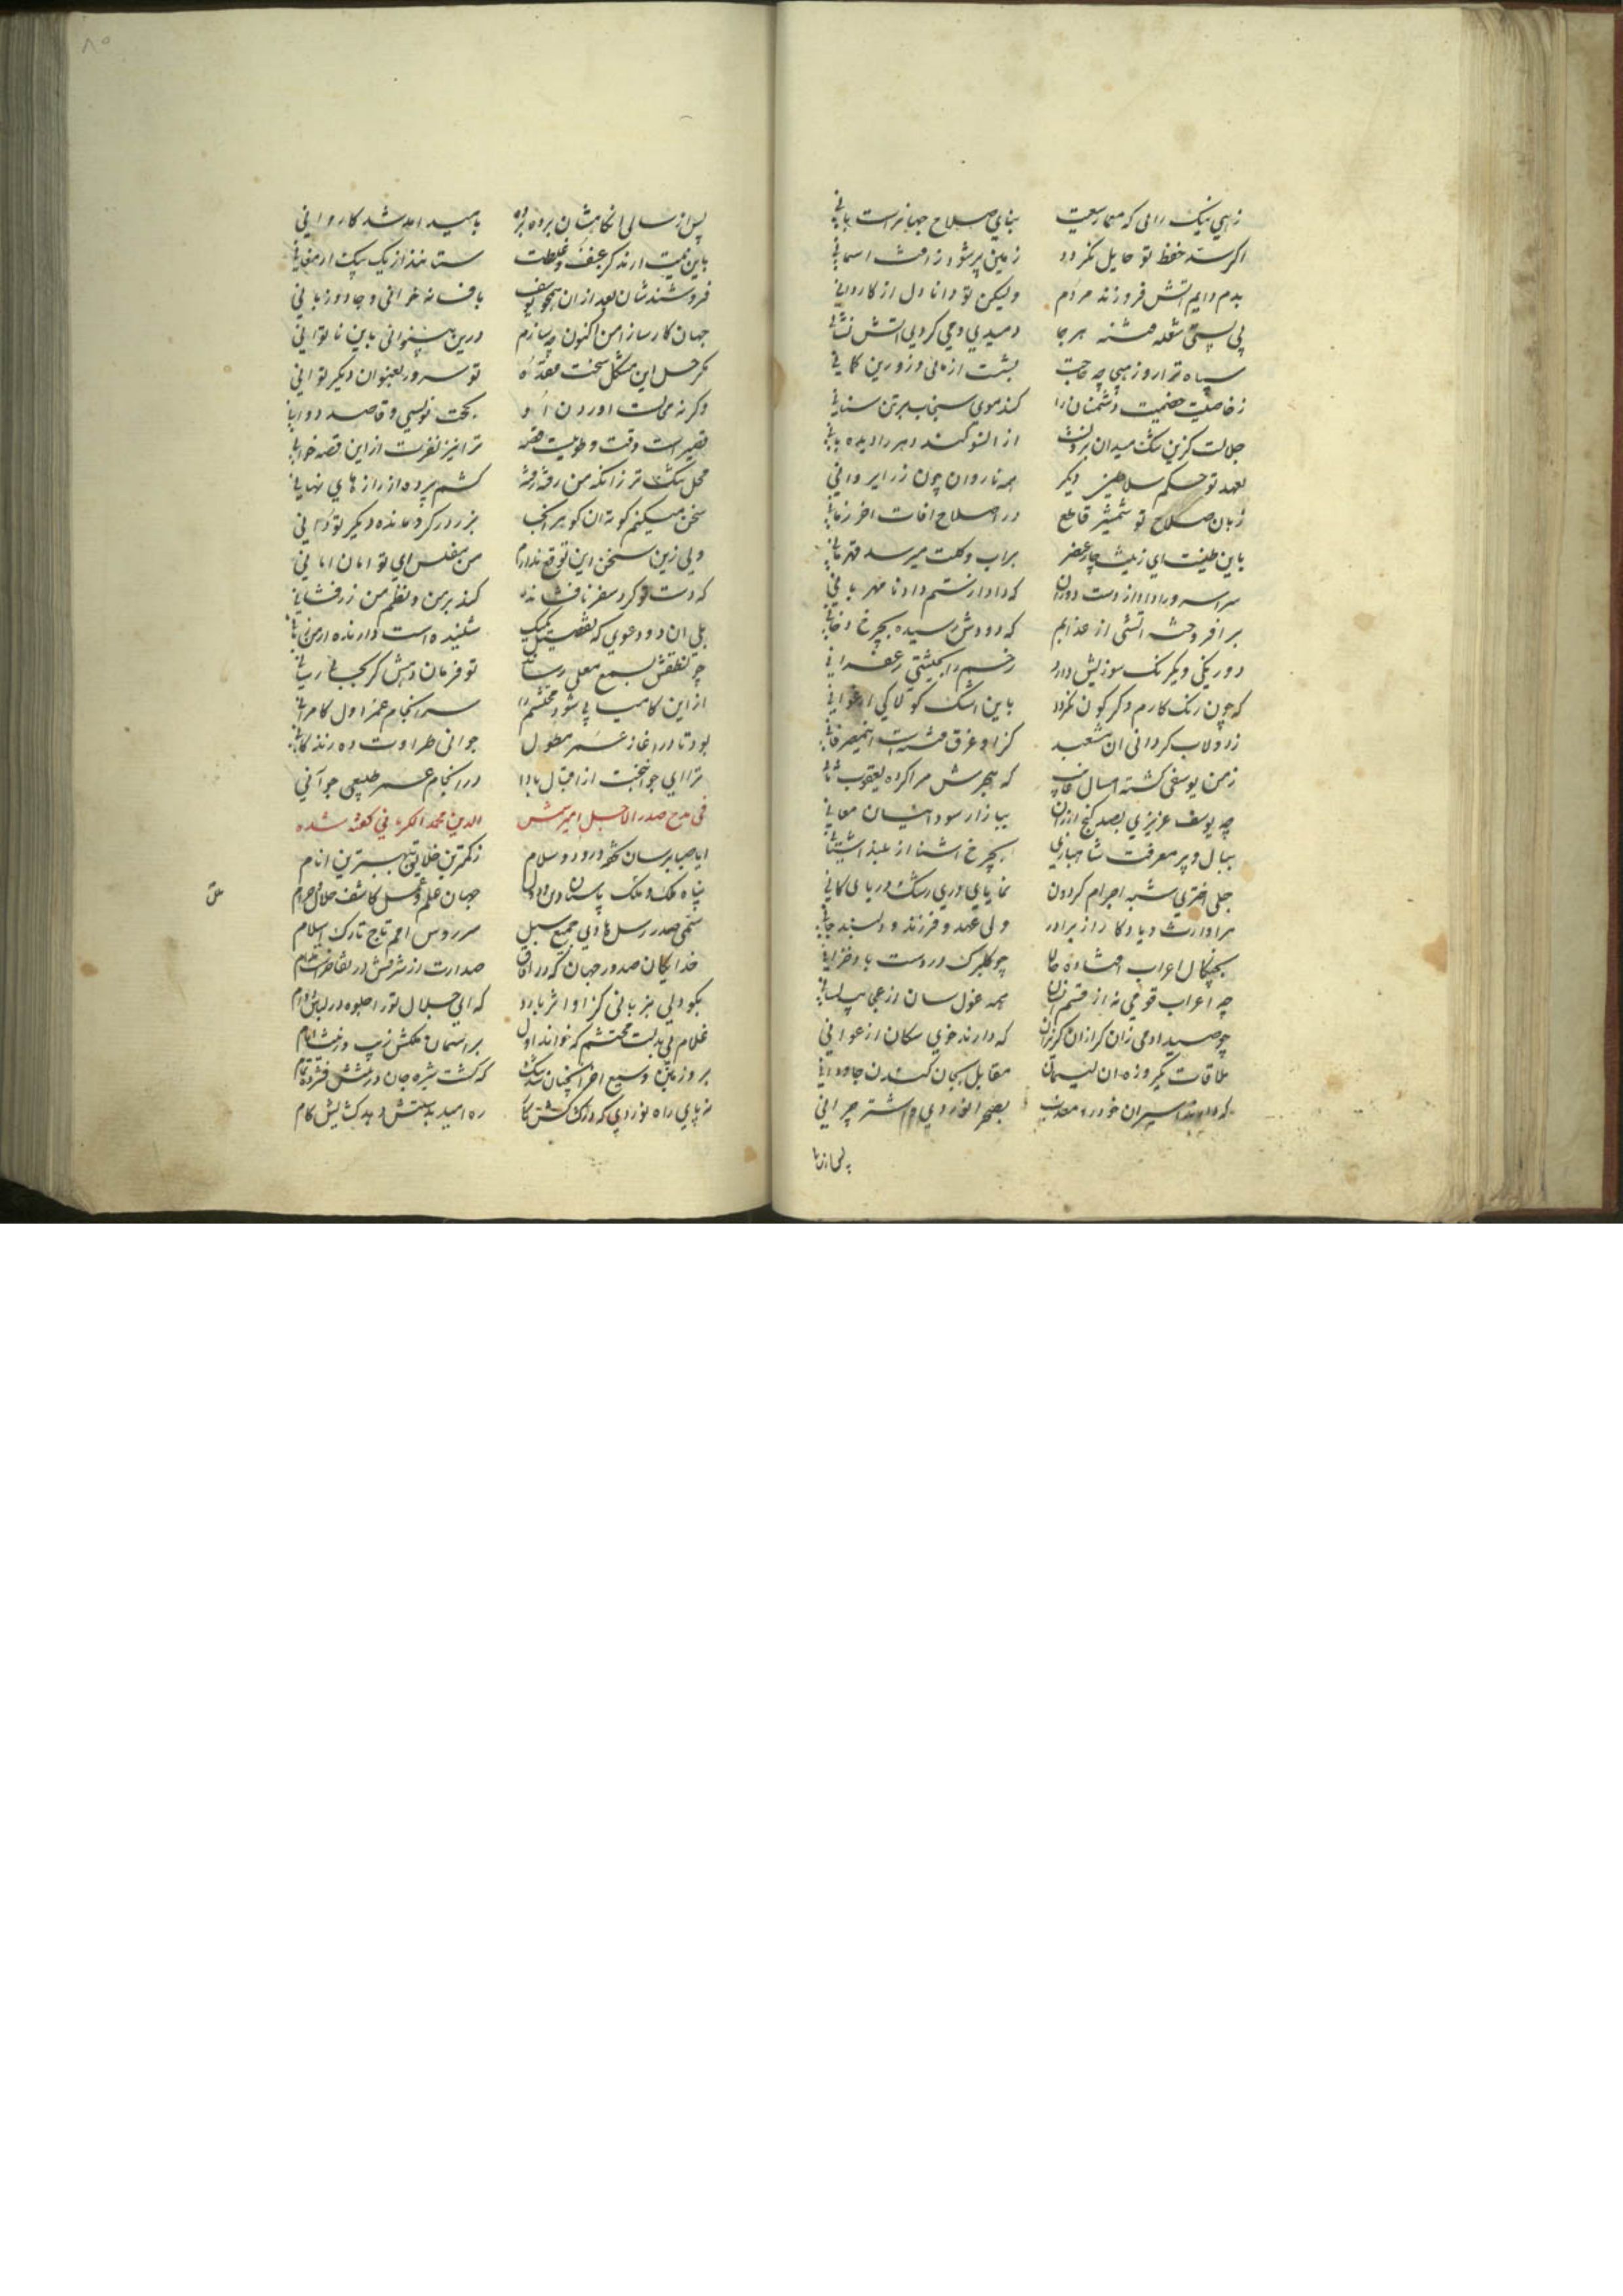 زهی نیک رامی که معماریت بنای صلاح جهانراست بانی
اکر سد حفظ تو حایل نکردد زمین پرشود زافت اسمانی
بدم دایم اتش فروزند مردم ولیکن تو دانا دل از کاردانی
پی پستی شعله فتنه هر جا دمیدی ومی کردی اتش نشانی
سپاه ترا روز هیجا چه حاجت
زخاصیت خصمیت دشمنان را کند موی سنجاب بر تن سنانی
جلالت کزین تنک میدان برونست از انسو کند دهر را دیده بانی
بعهد تو حکم سلاطین دیکر همه ناروان چون زر ایروانی
زبان صلاح تو شمشیر قاطع در اصلاح افات اخر زمانی
باین طینت ای زینت چار عنصر بر اب و کلت میرسد قهرمانی
سراسرورا داد از دست دوران که داد از ستم داد نا مهربانی
برافروخته اتشی از عذابم که دودش رسیده بچرخ دخانی
دو رنکی ویکرنک سوزیش دارد رخم را بکیتی زعفرانی
که چون رنک کارم دکرکون نکردد باین اشک کولاکی ارغوانی
زدولاب کردانی ان مشعبد کزا وغرق فتنه است
زمن یوسفی کشته امسال غایب که هجرش مرا کرده یعقوب ثانی
چه یوسف عزیزی بصد کنج ارزان ببازار سوداییان معانی
ببال و پر معرفت شاهبازی بچرخ اشنا از بلند اشیانی
جلی اختری شبه اجرام کردون نمایای دری رشک دریای کانی
مرا وارث و یادکار از برادر ولی عهد و فرزند و دلبند جانی
بچنکال اعراب افتاده حالا چو کلبرک در دست باد خزانی
چه اعراب قومی نه از قسم انسان همه غول سان از عجایب لسانی
چو صید ادمی زان کرازان کریزان که دارند خوی سکان از عوانی
ملاقات یکروزه ان لئیمان مقابل بجان کندن جاودانی
که دارند اسیران خود را معذب بصحرا نوردی و اشتر چرانی
پس از سالی انکاهشان برده برده بامید امد شد کاروانی
باین نیت ارند کز عنف و غلظت ستانند از یک بیک ارمغانی
فروشندشان بعد از ان همچو یوسف بافسانه خوانی و جادو زبانی
جهان کارسازا من اکنون چه سازم درین بینوائی باین ناتوانی
مکر حل این مشکل سخت عقده تو سرور بعنوان دیکر توانی
وکرنه محالست اوردن او بکحت نویسی و قاصد دوانی
قصیر است وقت و طویلست قصه ترا نیز نفرت از این قصه خوانی
محل تنک تر زانکه من رفته رفته کشم پرده از رازهای نهانی
سخن میکنم کوته ان کوهر انجا بزر در کرو مانده دیکر تو دانی
ولی زین سخن این توقع ندارم من مفلس ای تو امان امانی
که دست تو کرد سفر نافشانده کند بر من و نظم من زرفشانی
بلی ان دو دعوی که تفصیل یکیک شنیده است دارنده ارمن زبانی
چو نطقش بسمع معلی رساند تو فرمان دهش کر بجا میرسانی
از این کامیابی شود محتشم را سرانجام عمر اول کامرانی
بود تا در اغاز عمر مطول جوانی طراوت ده زندکانی
ترا ای جوانبخت از اقبال بادا در انجام عمر طبیعی جوانی
فی مدح صدر الاجل امیر شمس الدین محمد الکرمانی کفته شده
ایا صبا برسان تحفه درود و سلام زکمترین خلایق به بهترین انام
پناه ملک و ملک پاسبان دین و دول جهان علم و عمل کاشف حلال و حرام
سمی صدر رسل هادی جمیع سبل سرروس امم تاج تارک اسلام
خدایکان صدور جهان که در افاق صدارت از شرفش در تفاخر است مدام
بکو ولی بزبانی کزا و اثر بارد که ای جلال تورا جلوه در لباس دوام
غلام بی بدلت محتشم که خواند اول بر استان ملکش زیب و زینت ایام
بروزمین وسیع اخر انچنان شد تنک که کشت شیره جان در تنش فشرده تمام
نه پای راه نوردی که در کشاکش کار ره امید بدستش دهد کشایش کام